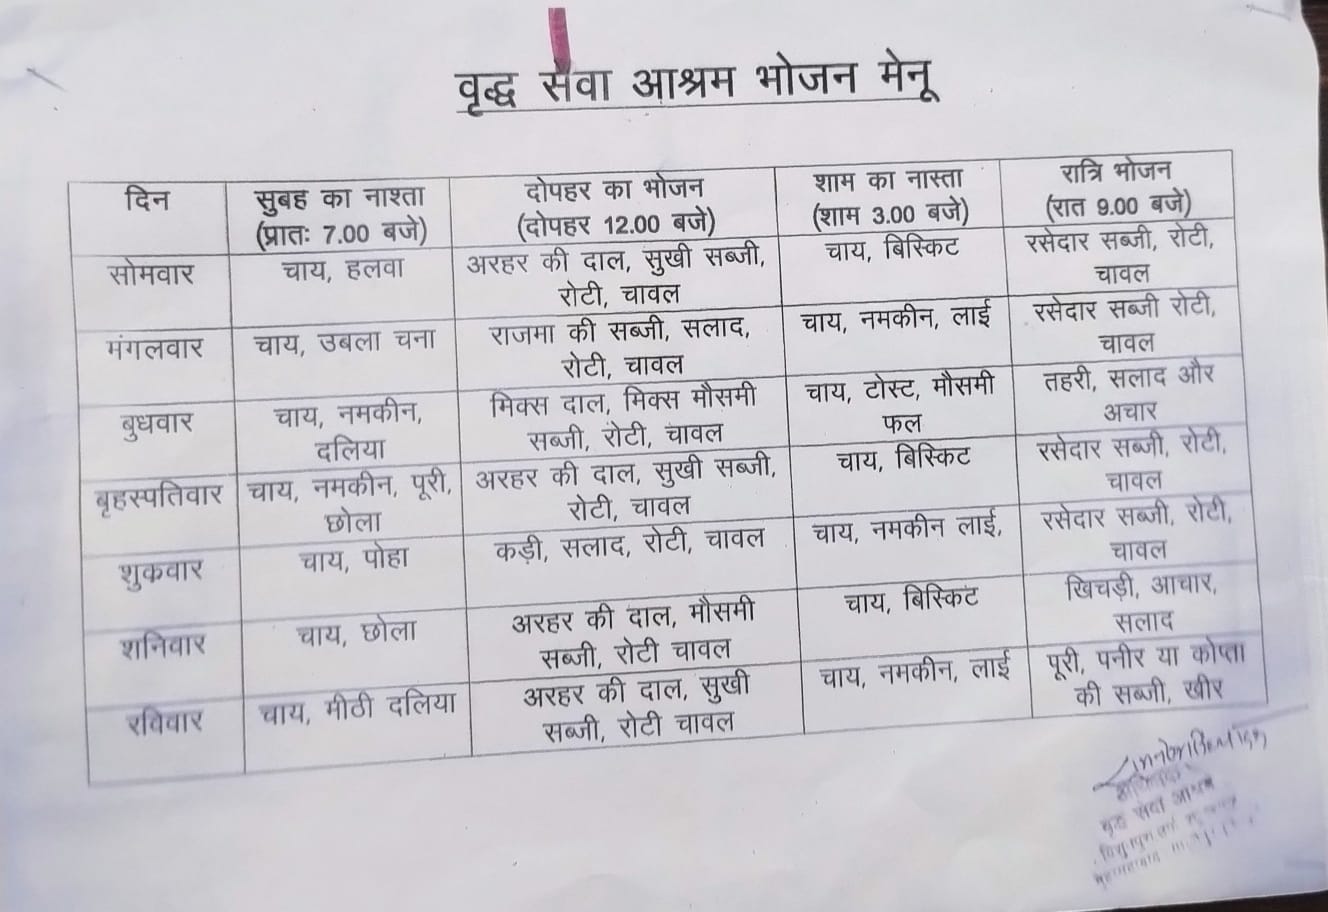 वृद्ध सेवा आश्रम भोजन मेनू
दिन
सुबह का नाश्ता
(प्रातः 7.00 बजे)
दोपहर का भोजन
(दोपहर 12.00 बजे)
शाम का नास्ता
(शाम 3.00 बजे)
रात्रि भोजन
(रात 9.00 बजे)
सोमवार
चाय, हलवा
अरहर की दाल, सुखी सब्जी,
रोटी, चावल
चाय, बिस्किट
रसेदार सब्जी, रोटी,
चावल
मंगलवार
चाय, उबला चना
राजमा की सब्जी, सलाद,
रोटी, चावल
चाय, नमकीन, लाई
रसेदार सब्जी रोटी,
चावल
बुधवार
चाय, नमकीन,
दलिया
मिक्स दाल, मिक्स मौसमी
सब्जी, रोटी, चावल
चाय, टोस्ट, मौसमी
फल
तहरी, सलाद और
अचार
बृहस्पतिवार
चाय, नमकीन, पूरी,
छोला
अरहर की दाल, सुखी सब्जी,
रोटी, चावल
चाय, बिस्किट
रसेदार सब्जी, रोटी,
चावल
शुकवार
चाय, पोहा
कड़ी, सलाद, रोटी, चावल
चाय, नमकीन लाई,
रसेदार सब्जी, रोटी,
चावल
शनिवार
चाय, छोला
अरहर की दाल, मौसमी
सब्जी, रोटी चावल
चाय, बिस्किट
खिचड़ी, आचार,
सलाद
रविवार
चाय, मीठी दलिया
अरहर की दाल, सुखी
सब्जी, रोटी चावल
चाय, नमकीन, लाई
पूरी, पनीर या कोप्ता
की सब्जी, खीर
वृद्ध सेवा आश्रम